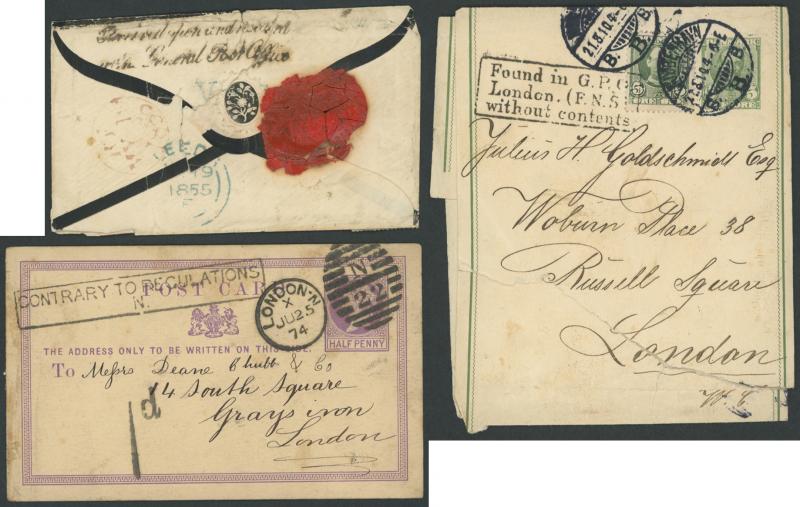 Received open and resealed
with General Post Office
LEEDS
19
1855
Found in G.P.
London. (F.N.S
without contents
21.8.10.4-6
B. B.
Julius H. Goldschmidt Esq
Woburn Place 38
Russell Square
London
W. C.
CONTRARY TO REGULATIONS
N.
POST CARD
LONDON·N
X
JU 25
74
N
22
HALF PENNY
THE ADDRESS ONLY TO BE WRITTEN ON THIS SIDE.
To Messrs Deane Chubb & Co
14 South Square
Grays inn
London
1d